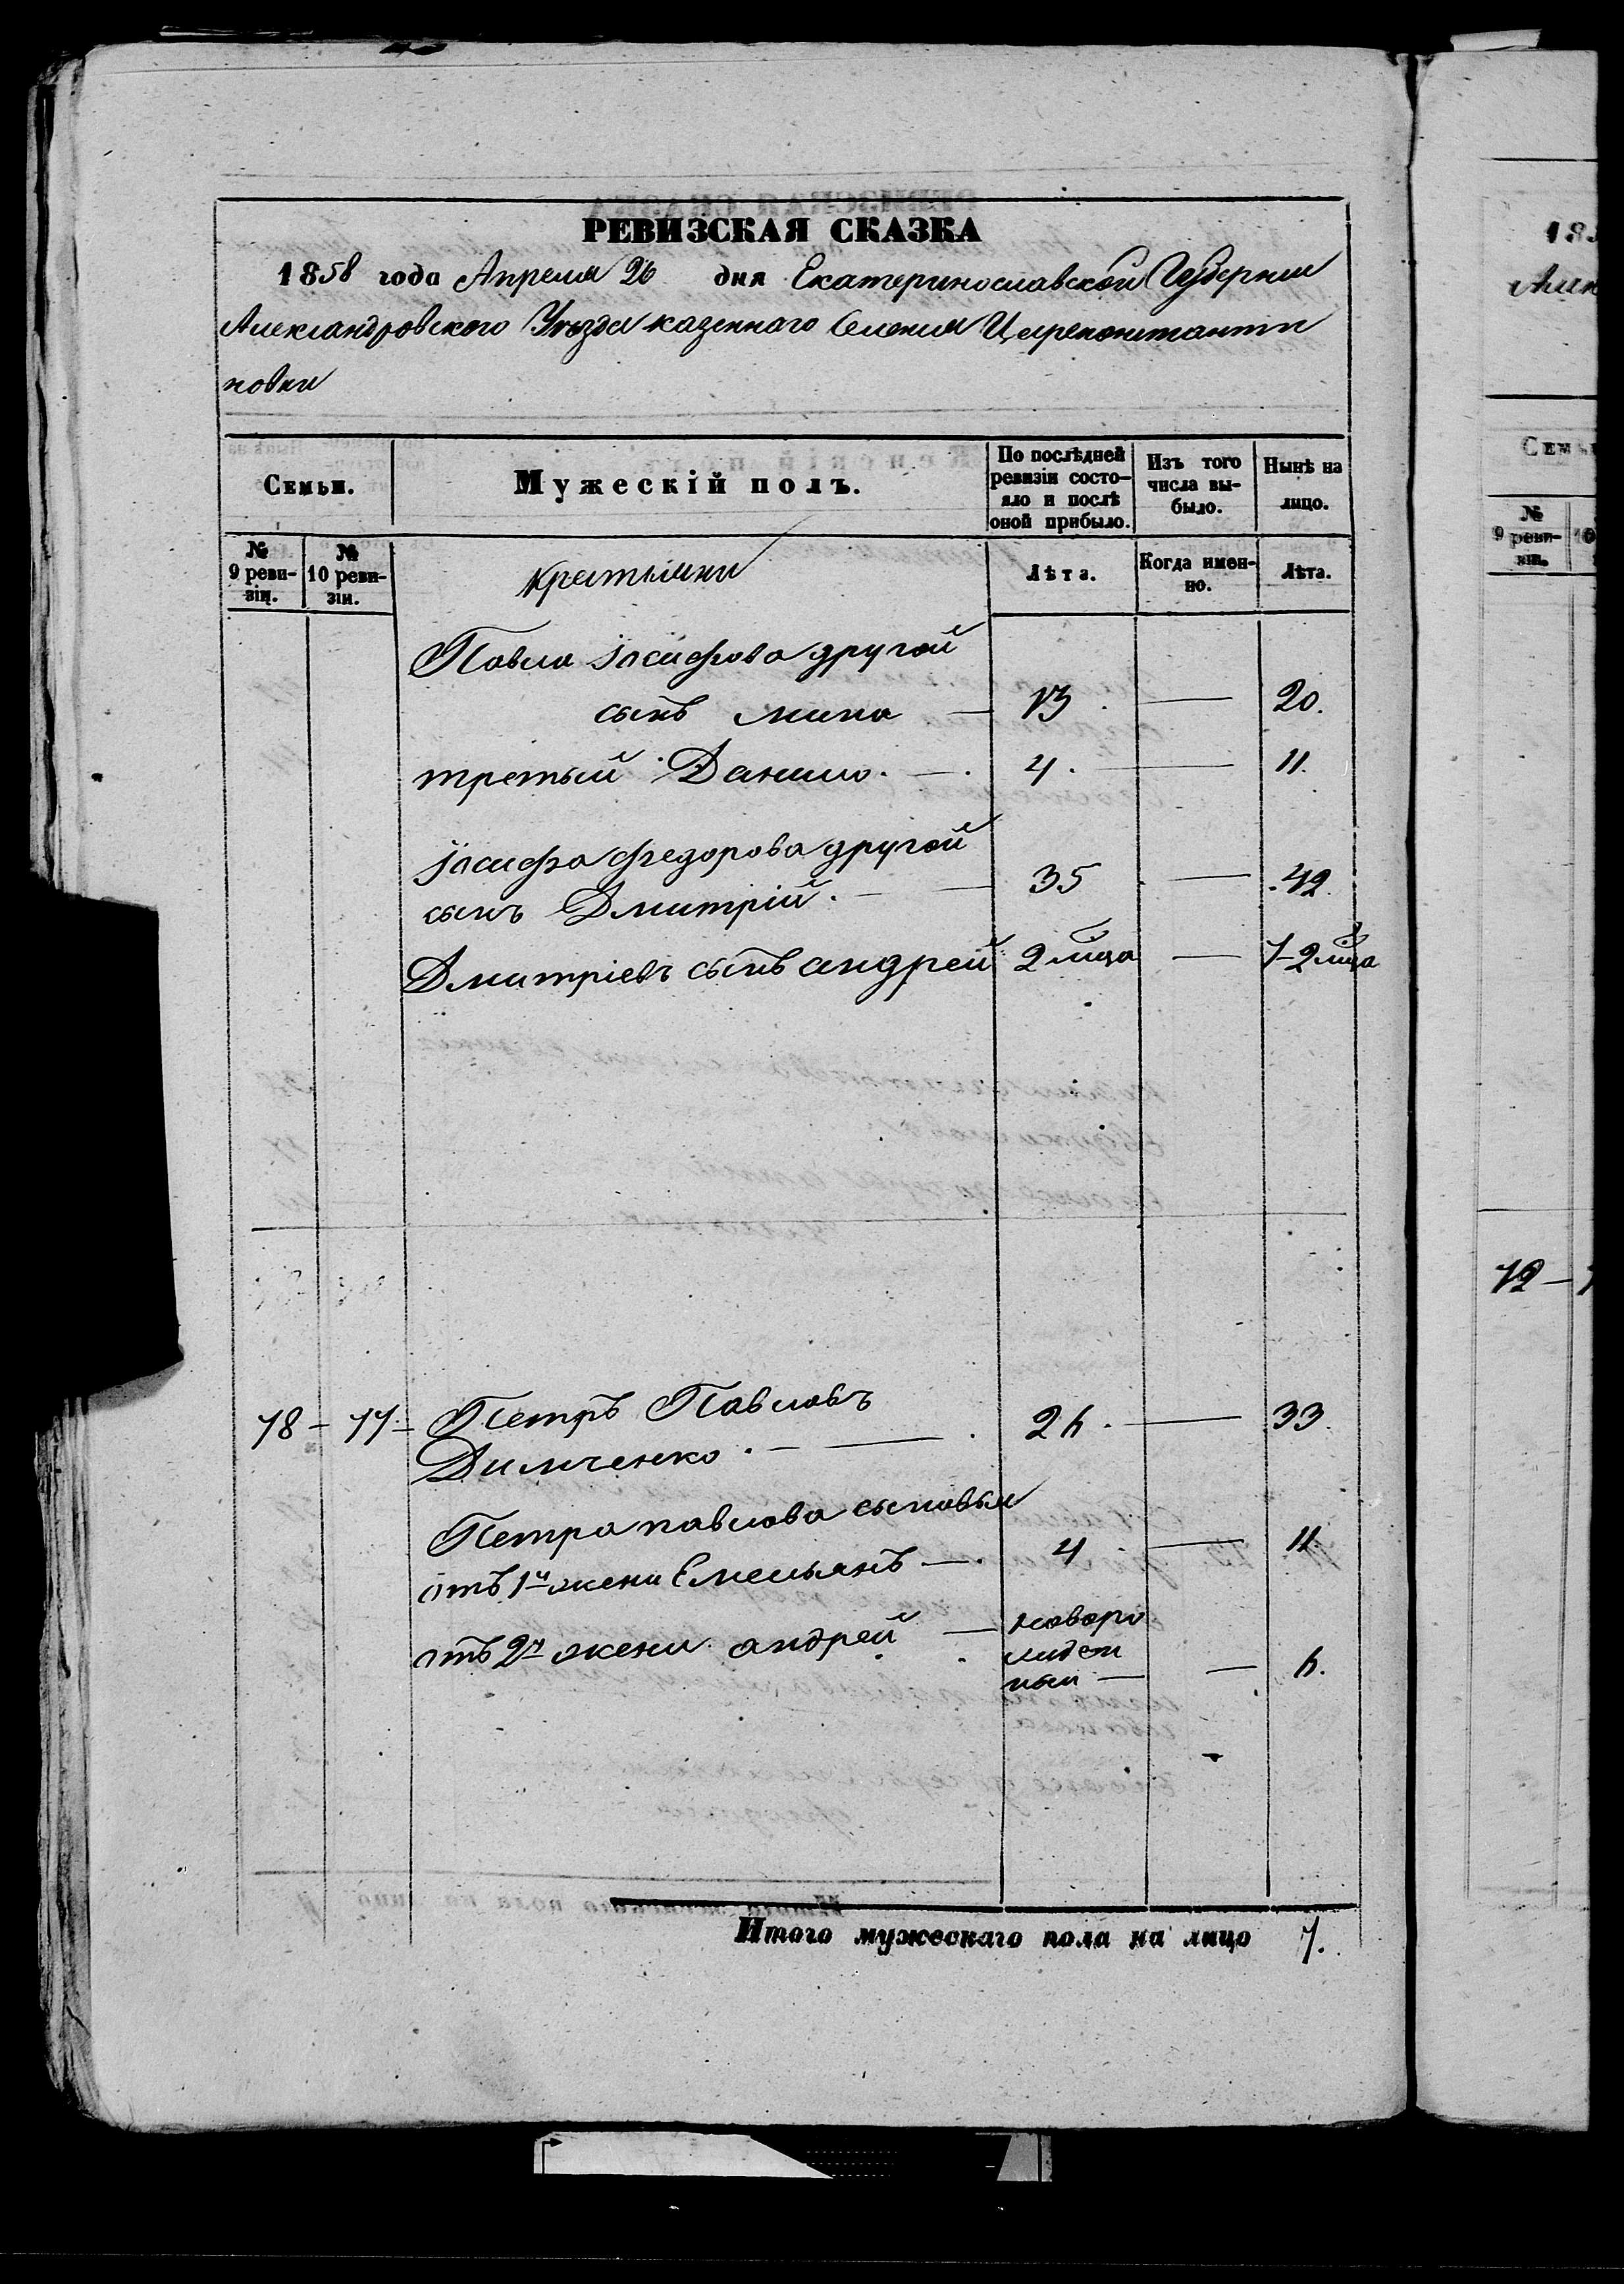 РЕВИЗСКАЯ СКАЗКА
1858 года Апреля 26 дня Екатеринославской Губернии
Александровского Уезда казенного Селения Цареконстанти
новки
Семьи. Мужескій полъ. По послѣдней ревизіи состо-яло и послѣ оной прибыло. Изъ того числа вы-было. Нынѣ на лицо.
№ 9 реви-зіи. № 10 реви-зіи. Крестьяни Лѣта. Когда имен-но. Лѣта.
Павла Іосифова другой
сынъ Мина — 13 — 20.
третый Данило. — 4. — 11.
Іосифа Федорова другой
сынъ Дмитрій. — 35 — 42.
Дмитріевъ сынъ андрей 2 — 7
78 - 77 - Петръ Павловъ
Димченко. — 26. — 33.
Петра павлова сыновья
отъ 1й жени Емельянъ — 4 — 11.
отъ 2й жени андрей — новоро
жден
ный — — 6.
Итого мужескаго пола на лицо 7.
185
Алек
Семьи
№ 9 реви-зіи. 10